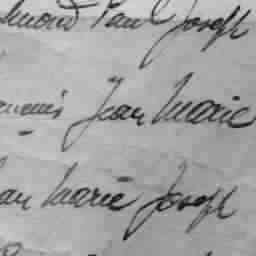 Paul Joseph
Jean Marie
Marie Joseph